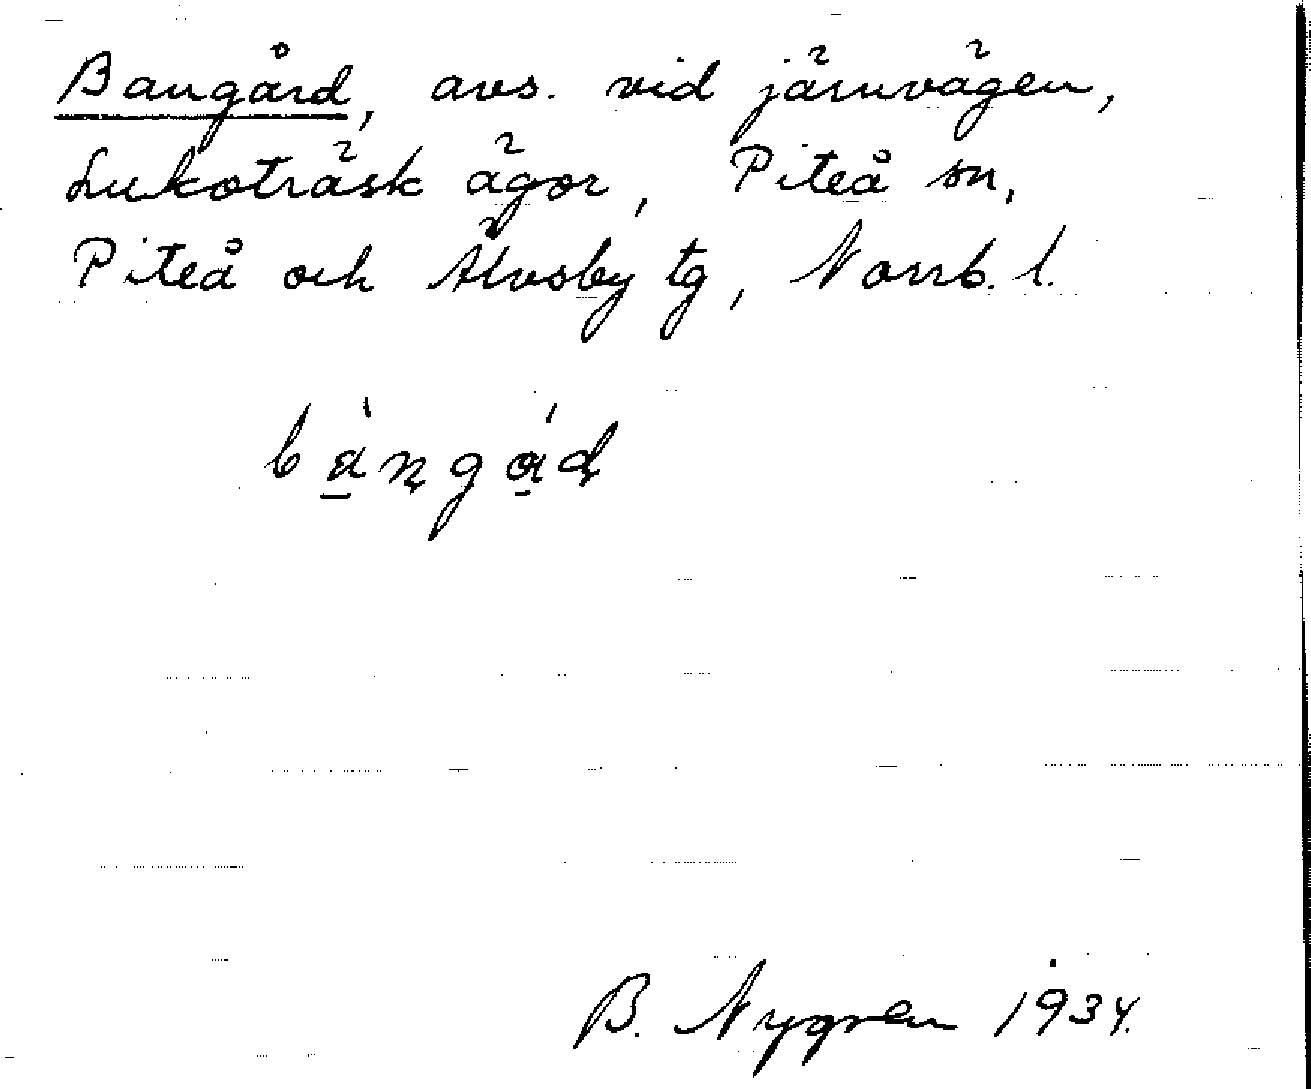 Bangård, avs. vid järnvägen,
Lukoträsk ägor, Piteå sn,
Piteå och Älvsby tg, Norrb. l.
B. Nygren 1934.